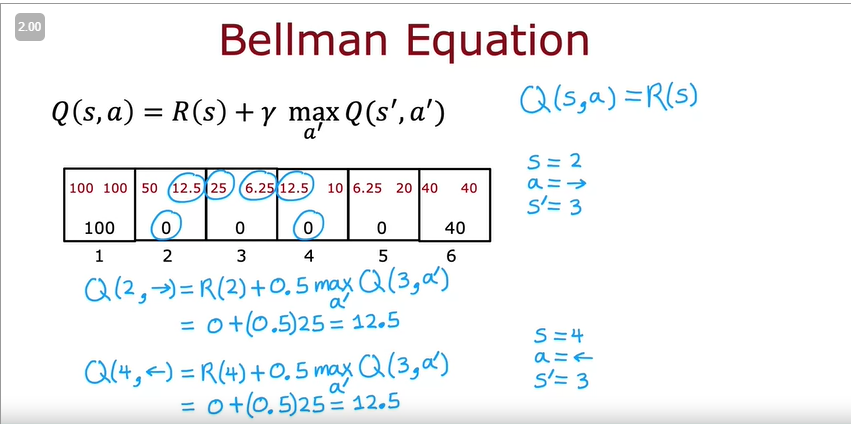 2.00
Bellman Equation
Q(s, a) = R(s) + γ max Q(s′, a′)
a′
Q(s,a) = R(s)
s = 2
a = →
s′ = 3
100 100 50 12.5 25 6.25 12.5 10 6.25 20 40 40
100 0 0 0 0 40
1 2 3 4 5 6
Q(2,→) = R(2) + 0.5 max Q(3,a′)
a′
= 0 + (0.5)25 = 12.5
s = 4
a = ←
s′ = 3
Q(4,←) = R(4) + 0.5 max Q(3,a′)
a′
= 0 + (0.5)25 = 12.5